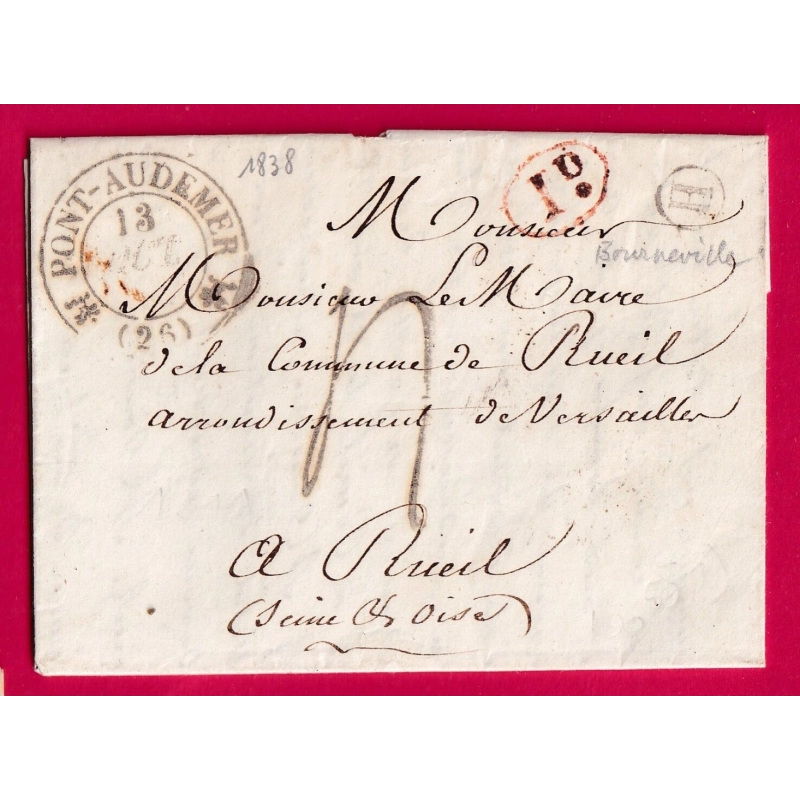 1838
PONT-AUDEMER
13
(26)
1D.
H
Bourneville
Monsieur
Monsieur Le Maire
de la Commune de Rueil
arrondissement de Versailles
A Rueil
(Seine & Oise)